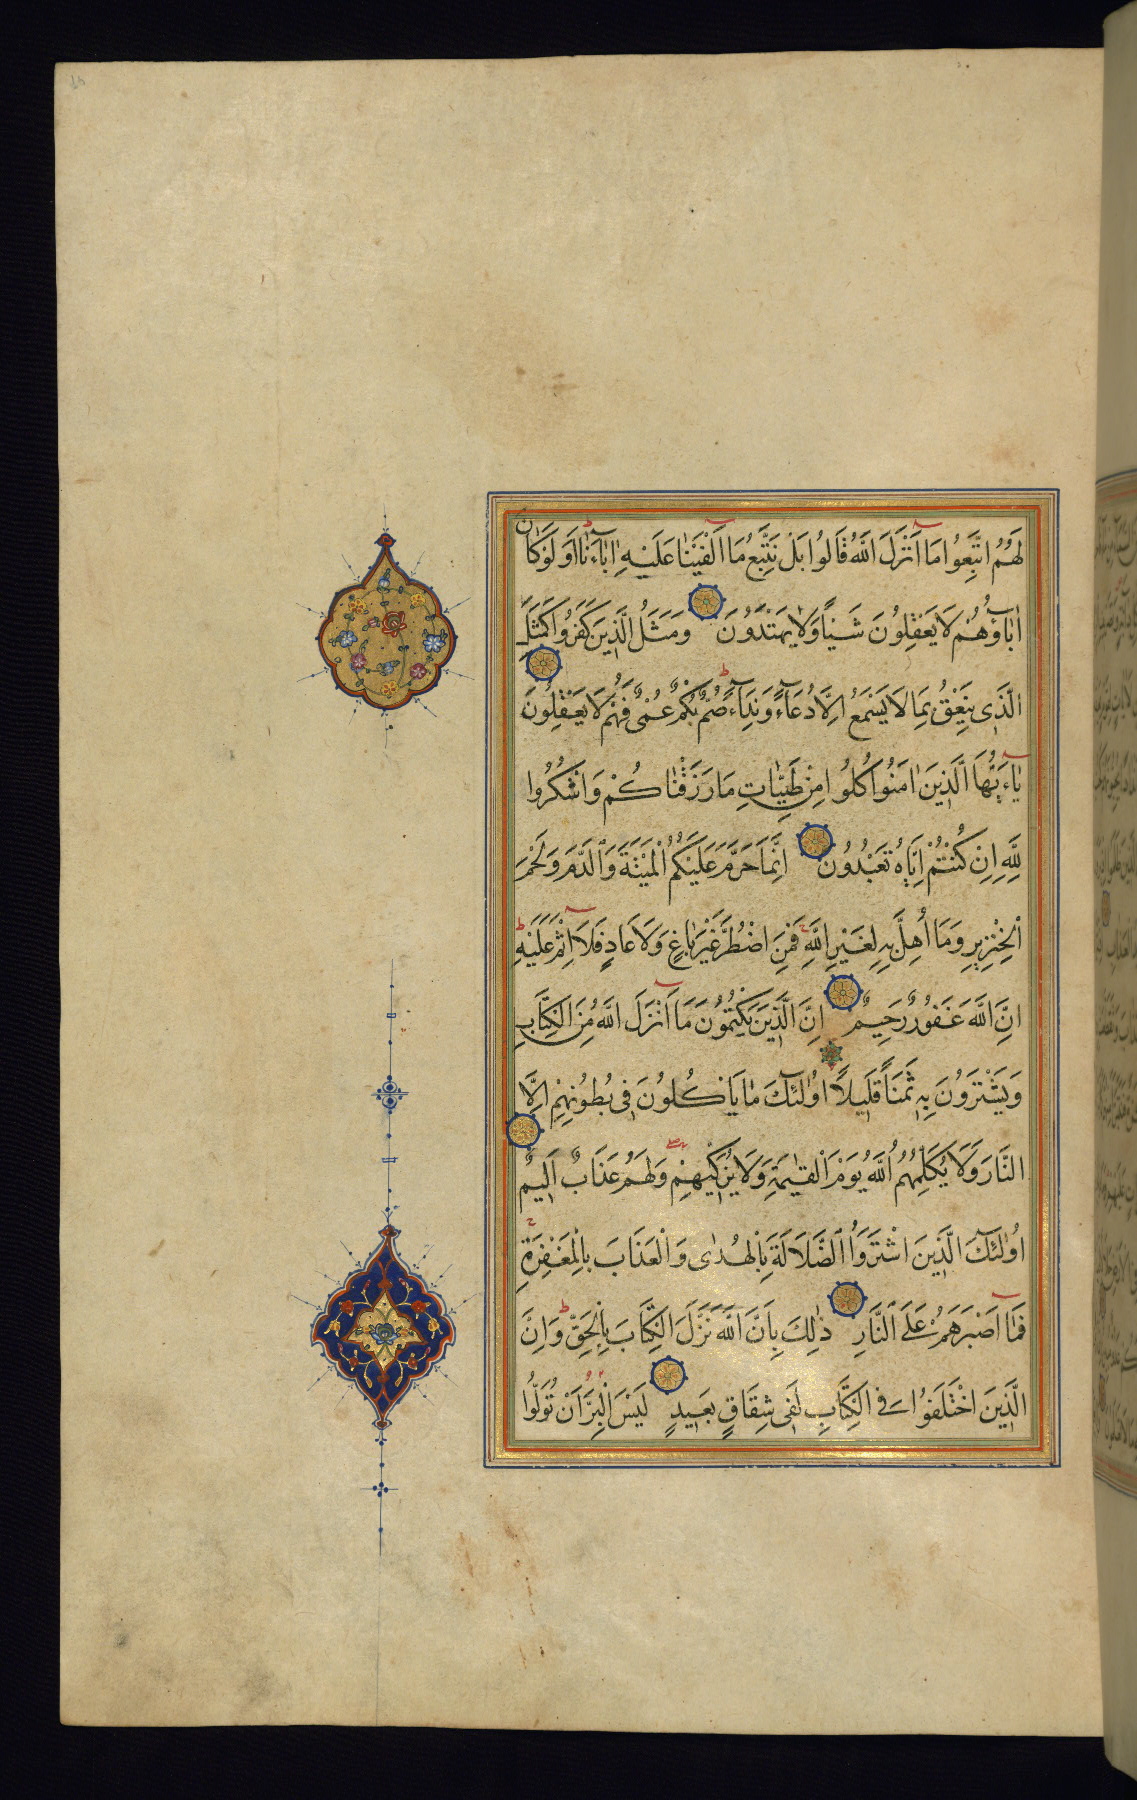 لَهُمُ اتَّبِعُوا مَا أَنْزَلَ اللَّهُ قَالُوا بَلْ نَتَّبِعُ مَا أَلْفَيْنَا عَلَيْهِ اٰبَاءَنَا أَوَلَوْ كَانَ
اٰبَاؤُهُمْ لَا يَعْقِلُونَ شَيْئًا وَلَا يَهْتَدُونَ وَمَثَلُ الَّذِينَ كَفَرُوا كَمَثَلِ
الَّذِي يَنْعِقُ بِمَا لَا يَسْمَعُ اِلَّا دُعَاءً وَنِدَاءً صُمٌّ بُكْمٌ عُمْيٌ فَهُمْ لَا يَعْقِلُونَ
يَاءَيُّهَا الَّذِينَ اٰمَنُوا كُلُوا مِنْ طَيِّبَاتِ مَا رَزَقْنَاكُمْ وَاشْكُرُوا
لِلَّهِ اِنْ كُنْتُمْ اِيَّاهُ تَعْبُدُونَ اِنَّمَا حَرَّمَ عَلَيْكُمُ الْمَيْتَةَ وَالدَّمَ وَلَحْمَ
الْخِنْزِيرِ وَمَا أُهِلَّ بِهِ لِغَيْرِ اللَّهِ فَمَنِ اضْطُرَّ غَيْرَ بَاغٍ وَلَا عَادٍ فَلَا اِثْمَ عَلَيْهِ
اِنَّ اللَّهَ غَفُورٌ رَحِيمٌ اِنَّ الَّذِينَ يَكْتُمُونَ مَا أَنْزَلَ اللَّهُ مِنَ الْكِتَابِ
وَيَشْتَرُونَ بِهِ ثَمَنًا قَلِيلًا اُولٰئِكَ مَا يَأْكُلُونَ فِي بُطُونِهِمْ اِلَّا
النَّارَ وَلَا يُكَلِّمُهُمُ اللَّهُ يَوْمَ الْقِيٰمَةِ وَلَا يُزَكِّيهِمْ وَلَهُمْ عَذَابٌ اَلِيمٌ
اُولٰئِكَ الَّذِينَ اشْتَرَوُا الضَّلَالَةَ بِالْهُدٰى وَالْعَذَابَ بِالْمَغْفِرَةِ
فَمَا أَصْبَرَهُمْ عَلَى النَّارِ ذٰلِكَ بِأَنَّ اللَّهَ نَزَّلَ الْكِتَابَ بِالْحَقِّ وَاِنَّ
الَّذِينَ اخْتَلَفُوا فِي الْكِتَابِ لَفِي شِقَاقٍ بَعِيدٍ لَيْسَ الْبِرَّ أَنْ تُوَلُّوا